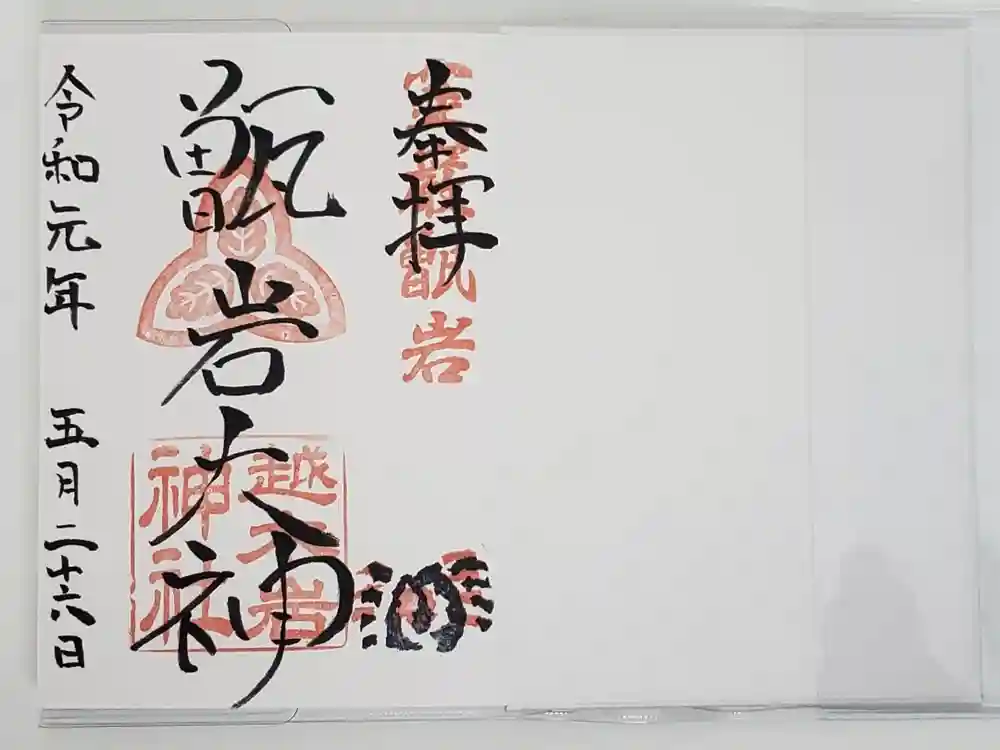 奉拝
甑岩
甑岩大神
越木岩神社
令和元年 五月二十六日